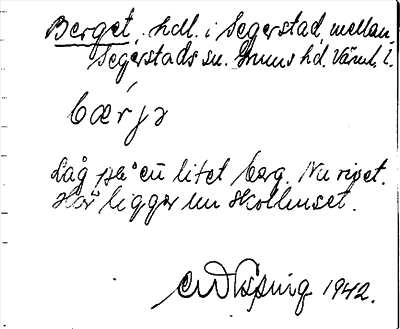 Berget, hdl. i Segerstad, mellan
Segerstads sn. Grums hd. Värml. l.
bærjə
Låg på en litet berg. Nu rivet.
Här ligger nu skolhuset.
1942.